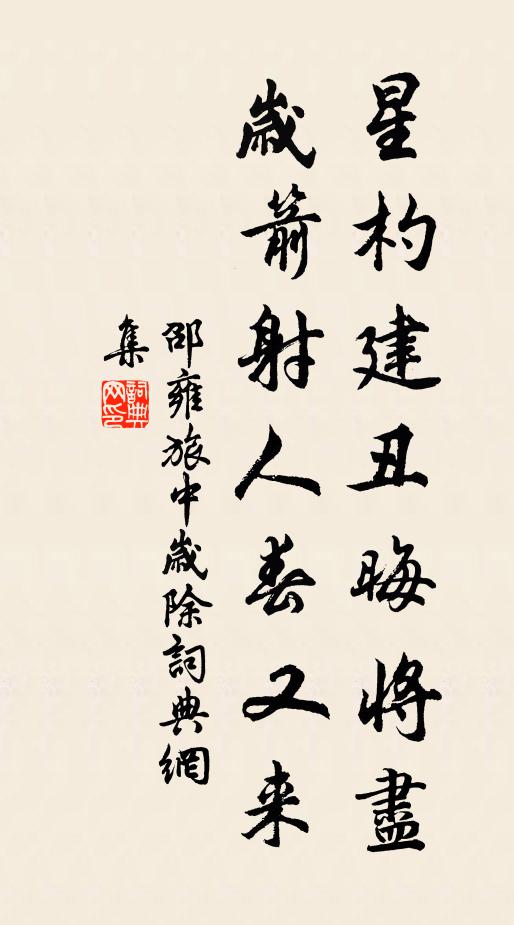 星杓建丑晦將盡
歲箭射人春又来
邵雍旅中歲除詞典網
集
詞典網印